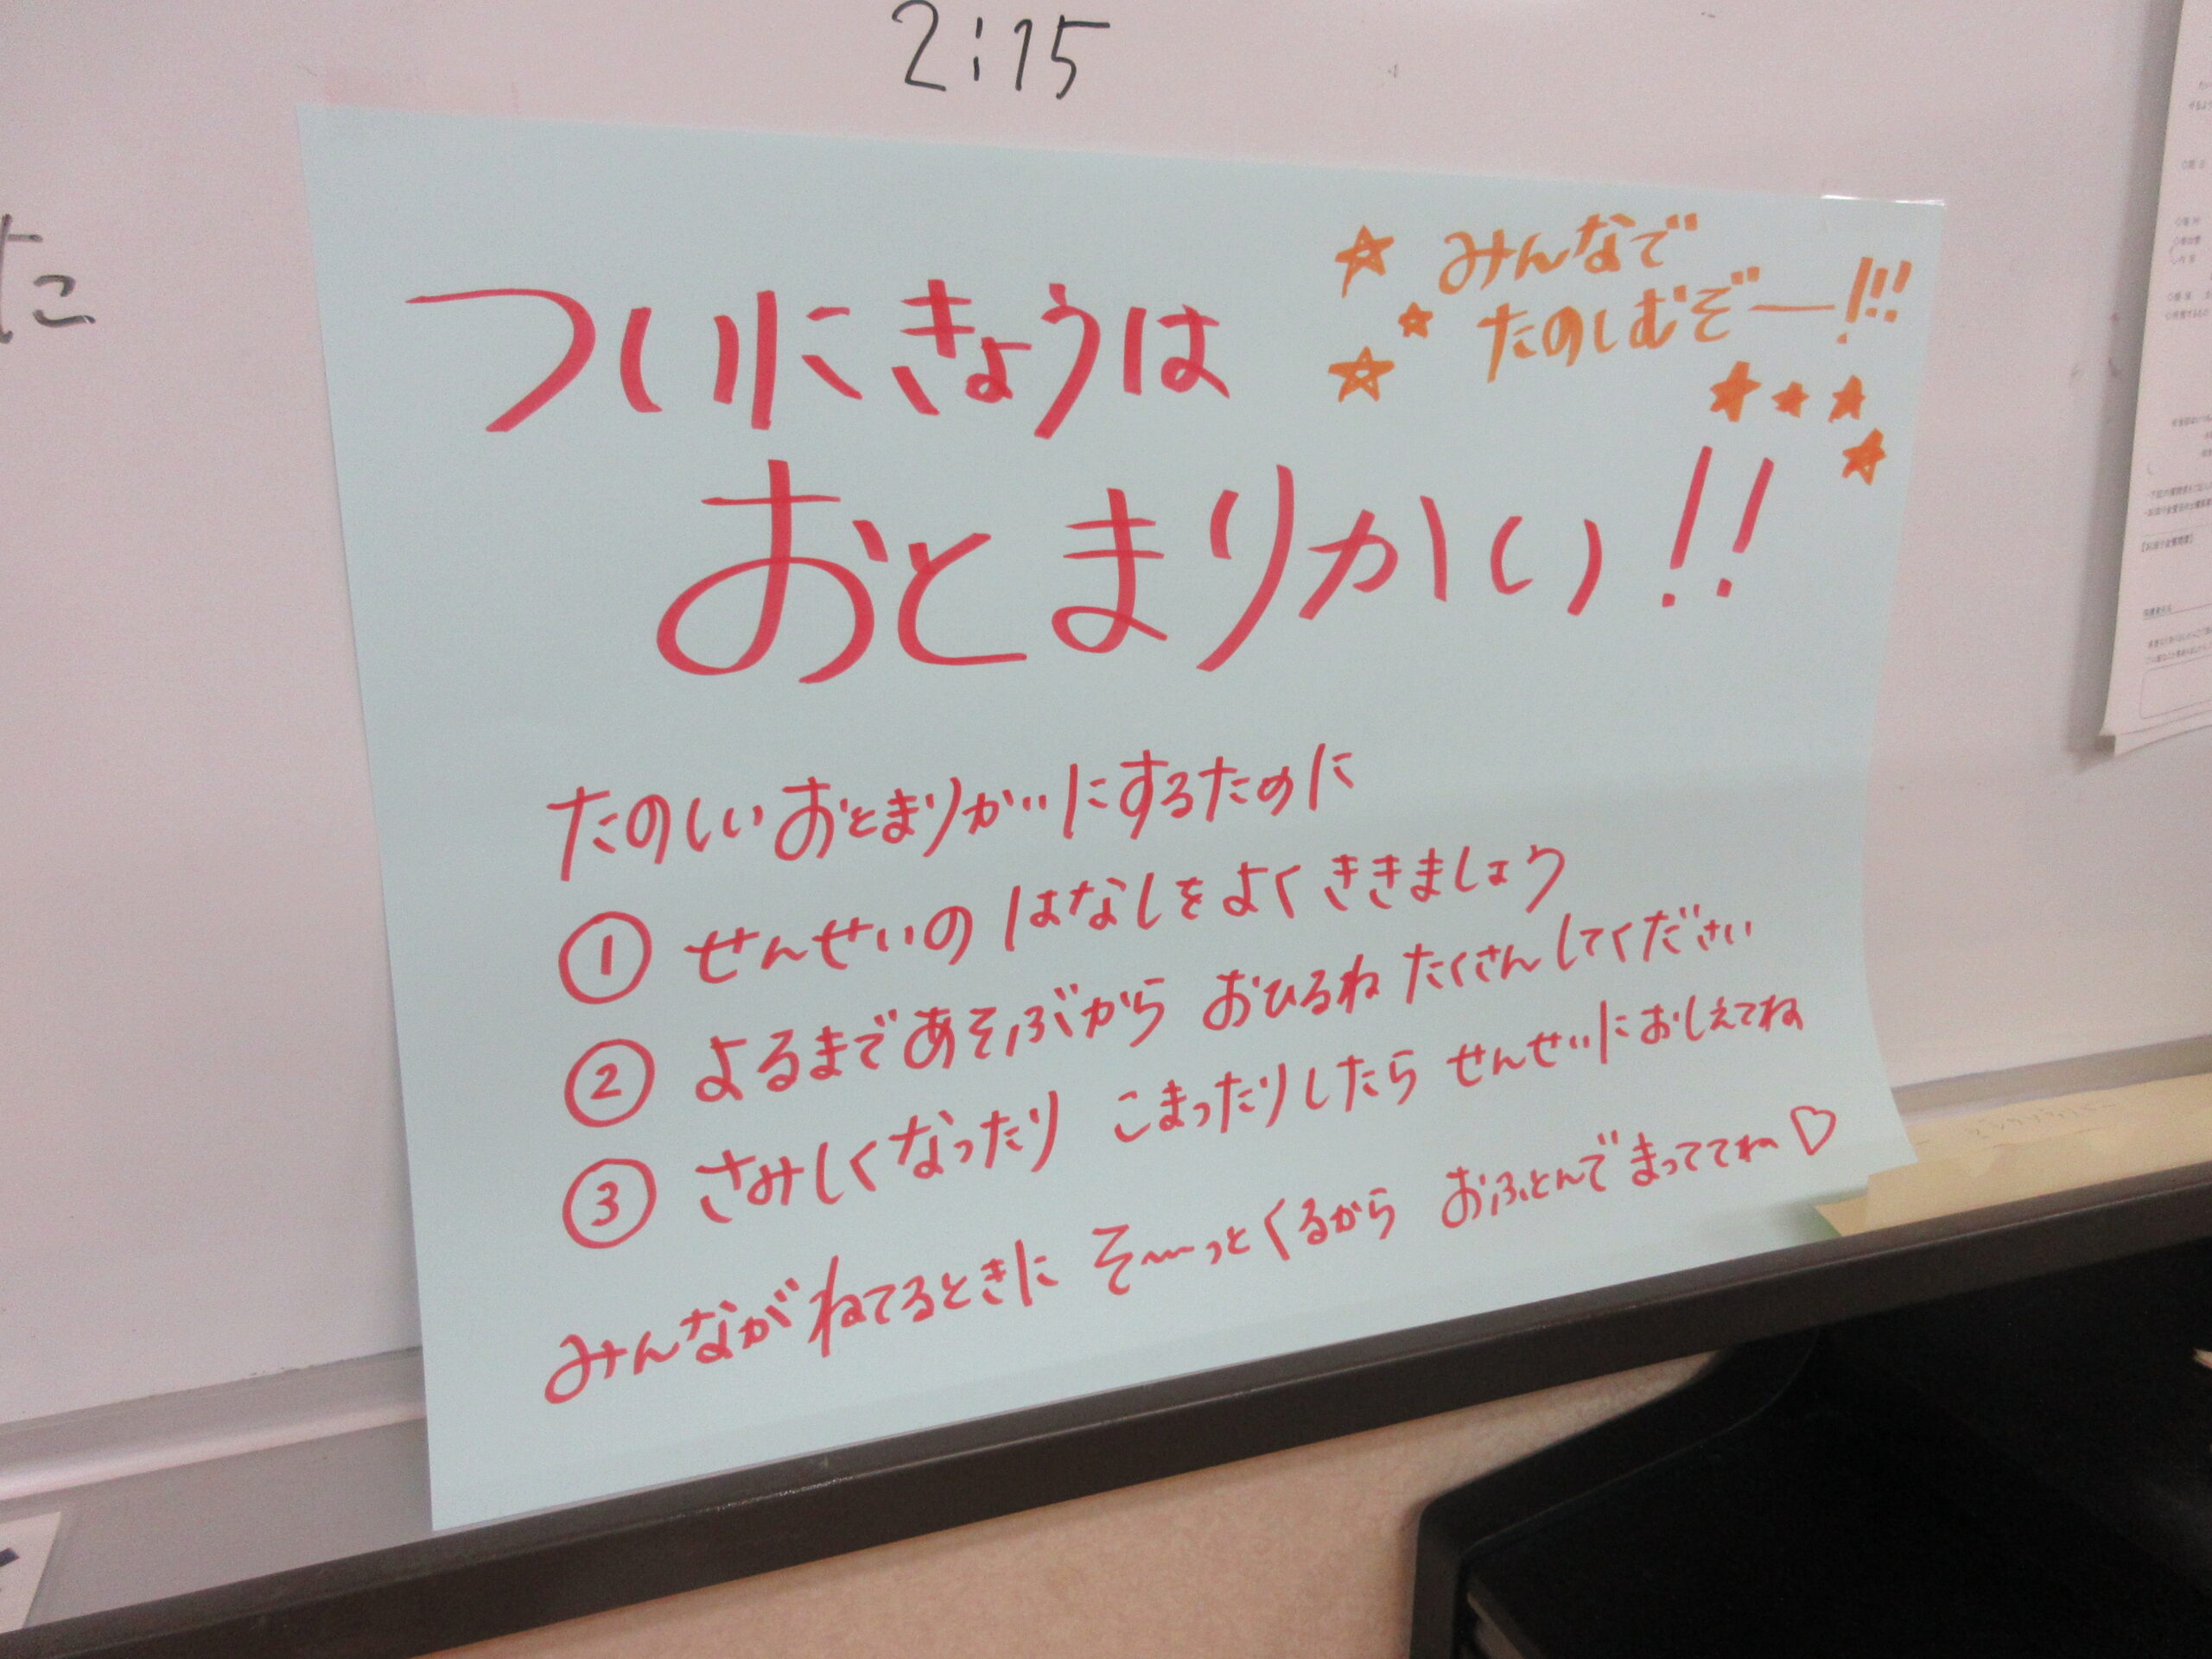 2:15
ついにきょうは
☆ みんなで
たのしむぞー!!!
おとまりかい!!
たのしいおとまりがいにするために
① せんせいの はなしをよく ききましょう
② よるまで あそぶから おひるね たくさんしてください
③ さみしくなったり こまったりしたら せんせいにおしえてね
みんなが ねてるときに そ〜っとくるから おふとんで まっててね♡